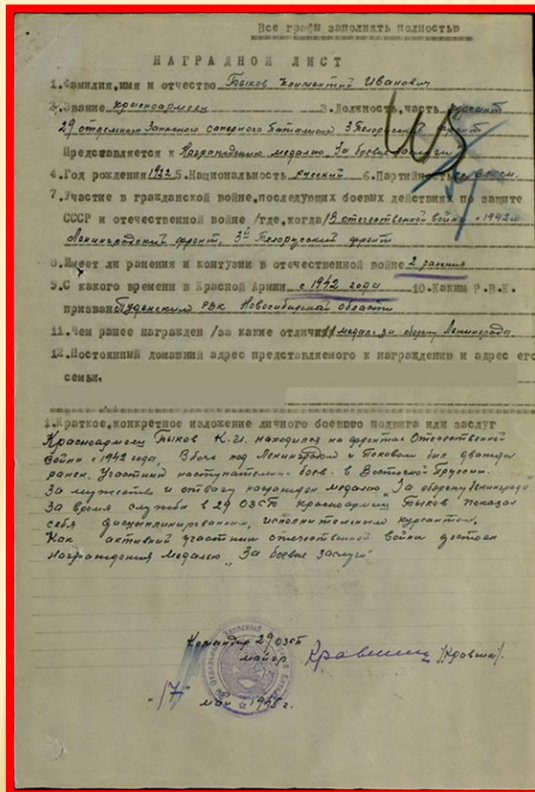 Все графы заполнять полностью
НАГРАДНОЙ ЛИСТ
1.Фамилия,имя и отчество Быков Климентий Иванович
2.Звание красноармеец 3.Должность,часть курсант
29 отдельного Запасного саперного батальона 3 Белорусский фронт
Представляется к Награждению медалью „За боевые заслуги"
4.Год рождения 1922 5.Национальность русский 6.Партийность
7.Участие в гражданской войне,последующих боевых действиях по защите
СССР и отечественной войне /где,когда/ В отечественной войне с 1942 г.
Ленинградский фронт, 3й Белорусский фронт
8.Имеет ли ранения и контузии в отечественной войне 2 ранения
9.С какого времени в Красной Армии с 1942 года 10.Каким Р.В.К.
призван РВК Новосибирской области
11.Чем ранее награжден /за какие отличия/ медаль за оборону Ленинграда.
12.Постоянный домашний адрес представляемого к награждению и адрес его
семьи.
1.Краткое,конкретное изложение личного боевого подвига или заслуг
Красноармеец Быков К.И. находился на фронтах Отечественной
Войны с 1942 года. В боях под Ленинградом и Псковом был дважды
ранен. Участник наступательных боев в Восточной Пруссии.
За мужество и отвагу награжден медалью „За оборону Ленинграда
За время службы в 29 ОЗСБ Красноармеец Быков показал
себя дисциплинированным, исполнительным курсантом.
Как активный участник отечественной войны достоин
Награждения медалью „За боевые заслуги"
Командир 29 ОЗСБ
майор /Кравчик/.
"17"
май 1945 г.